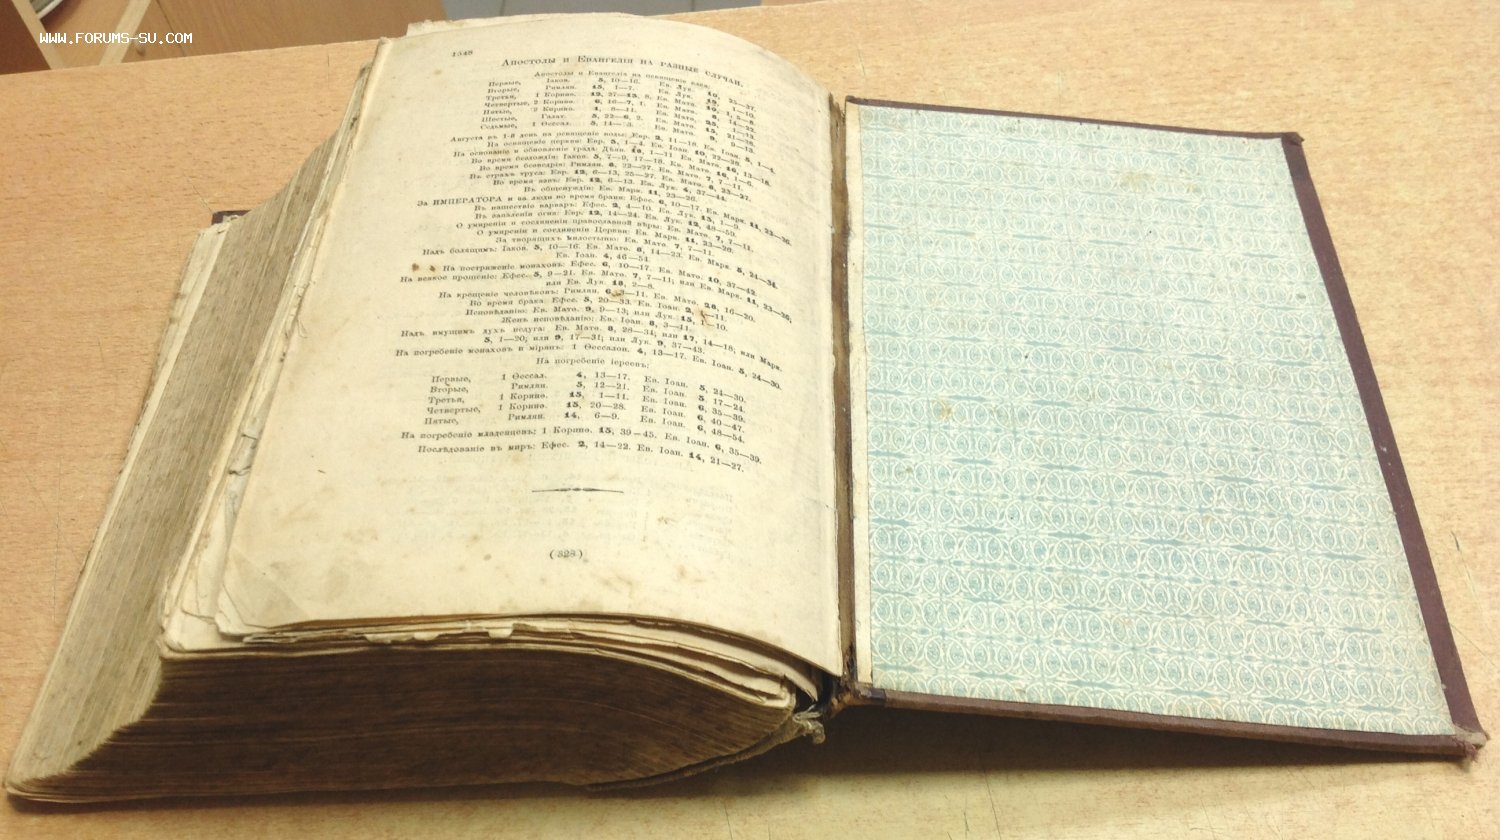 WWW.FORUMS-SU.COM
1548
Апостолы и Евангелія на разные случаи.
Апостолы и Евангелія на освященіе елея:
Первые, Іаков. 5, 10—16. Ев. Лук. 10, 25—37.
Вторые, Римлян. 15, 1—7. Ев. Лук. 19, 1—10.
Третьи, 1 Коринѳ. 12, 27—13, 8. Ев. Матѳ. 10, 1, 5—8.
Четвертые, 2 Коринѳ. 6, 16—7, 1. Ев. Матѳ. 8, 14—23.
Пятые, 2 Коринѳ. 1, 8—11. Ев. Матѳ. 25, 1—13.
Шестые, Галат. 5, 22—6, 2. Ев. Матѳ. 15, 21—28.
Седьмые, 1 Ѳессал. 5, 14—23. Ев. Матѳ. 9, 9—13.
Августа въ 1-й день на освященіе воды: Евр. 2, 11—18. Ев. Іоан. 5, 1—4.
На освященіе церкви: Евр. 3, 1—4. Ев. Іоан. 10, 22—28.
На основаніе и обновленіе града: Дѣян. 18, 1—11 Ев. Матѳ. 16, 13—18.
Во время бездождія: Іаков. 5, 7—9, 17—18. Ев. Матѳ. 16, 1—6.
Во время безведрія: Римлян. 8, 22—27. Ев. Матѳ. 7, 7—11.
Въ страхъ труса: Евр. 12, 6—13, 25—27. Ев. Матѳ. 8, 23—27.
Во время язвъ: Евр. 12, 6—13. Ев. Лук. 4, 37—44.
Въ общенуждіи: Ев. Марк. 11, 23—26.
За ИМПЕРАТОРА и за люди во время брани: Ефес. 6, 10—17. Ев. Марк. 11, 23—26.
Въ нашествіе варваръ: Ефес. 2, 4—10. Ев. Лук. 13, 1—9.
Въ запаленіи огня: Евр. 12, 14—24. Ев. Лук. 12, 48—59.
О умиреніи и соединеніи православной вѣры: Ев. Матѳ. 7, 7—11.
О умиреніи и соединеніи Церкви: Ев. Марк. 11, 23—26.
За творящихъ милостыню: Ев. Матѳ. 7, 7—11.
Надъ болящимъ: Іаков. 5, 10—16. Ев. Матѳ. 8, 14—23. Ев. Марк. 5, 24—34.
Ев. Іоан. 4, 46—54.
На постриженіе монаховъ: Ефес. 6, 10—17. Ев. Матѳ. 10, 37—42.
На всякое прошеніе: Ефес. 5, 9—21. Ев. Матѳ. 7, 7—11; или Ев. Марк. 11, 23—26,
или Ев. Лук. 18, 2—8.
На крещеніе человѣковъ: Римлян. 6, 3—11. Ев. Матѳ. 28, 16—20.
Во время брака: Ефес. 5, 20—33. Ев. Іоан. 2, 1—11.
Исповѣданію: Ев. Матѳ. 9, 9—13; или Лук. 15, 1—10.
Женъ исповѣданію: Ев. Іоан. 8, 3—11.
Надъ имущимъ духъ недуга: Ев. Матѳ. 8, 28—34; или 17, 14—18; или Марк.
5, 1—20; или 9, 17—31; или Лук. 9, 37—43.
На погребеніе монаховъ и мірянъ: 1 Ѳессалон. 4, 13—17. Ев. Іоан. 5, 24—30.
На погребеніе іереевъ:
Первые, 1 Ѳессал. 4, 13—17. Ев. Іоан. 5, 24—30.
Вторые, Римлян. 5, 12—21. Ев. Іоан. 5, 17—24.
Третья, 1 Коринѳ. 15, 1—11. Ев. Іоан. 6, 35—39.
Четвертые, 1 Коринѳ. 15, 20—28. Ев. Іоан. 6, 40—47.
Пятые, Римлян. 14, 6—9. Ев. Іоан. 6, 48—54.
На погребеніе младенцевъ: 1 Коринѳ. 15, 39—45. Ев. Іоан. 6, 35—39.
Послѣдованіе въ миръ: Ефес. 2, 14—22. Ев. Іоан. 14, 21—27.
(328)